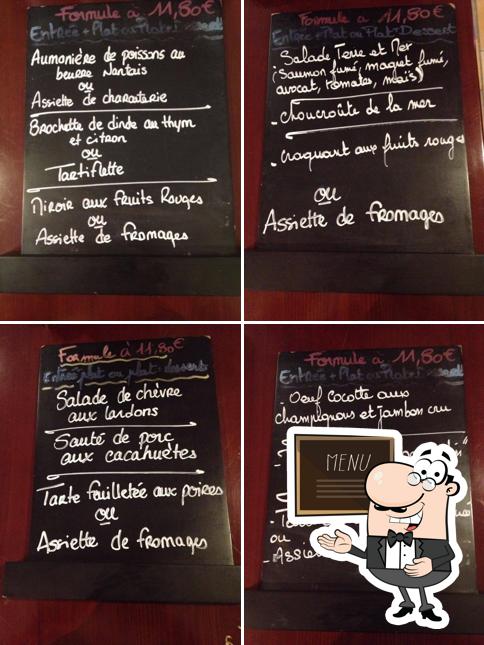 Formule à 11,80€
Entrée + Plat ou Plat + Dessert
Aumonière de poissons au
beurre Nantais
ou
Assiette de charcuterie
Brochette de dinde au thym
et citron
ou
Tartiflette
Miroir aux fruits Rouges
ou
Assiette de fromages
Formule à 11,80€
Entrée + Plat ou Plat + Dessert
Salade Terre et Mer
(Saumon fumé, magret fumé,
avocat, tomates, maïs)
- Choucroûte de la mer
- Craquant aux fruits rouges
ou
Assiette de fromages
Formule à 11,80€
Entrée plat ou plat dessert
Salade de chèvre
aux lardons
Sauté de porc
aux cacahuètes
Tarte feuilletée aux poires
ou
Assiette de fromages
Formule à 11,80€
Entrée + Plat ou Plat +
- Oeuf Cocotte aux
champignons et jambon cru
MENU
ou